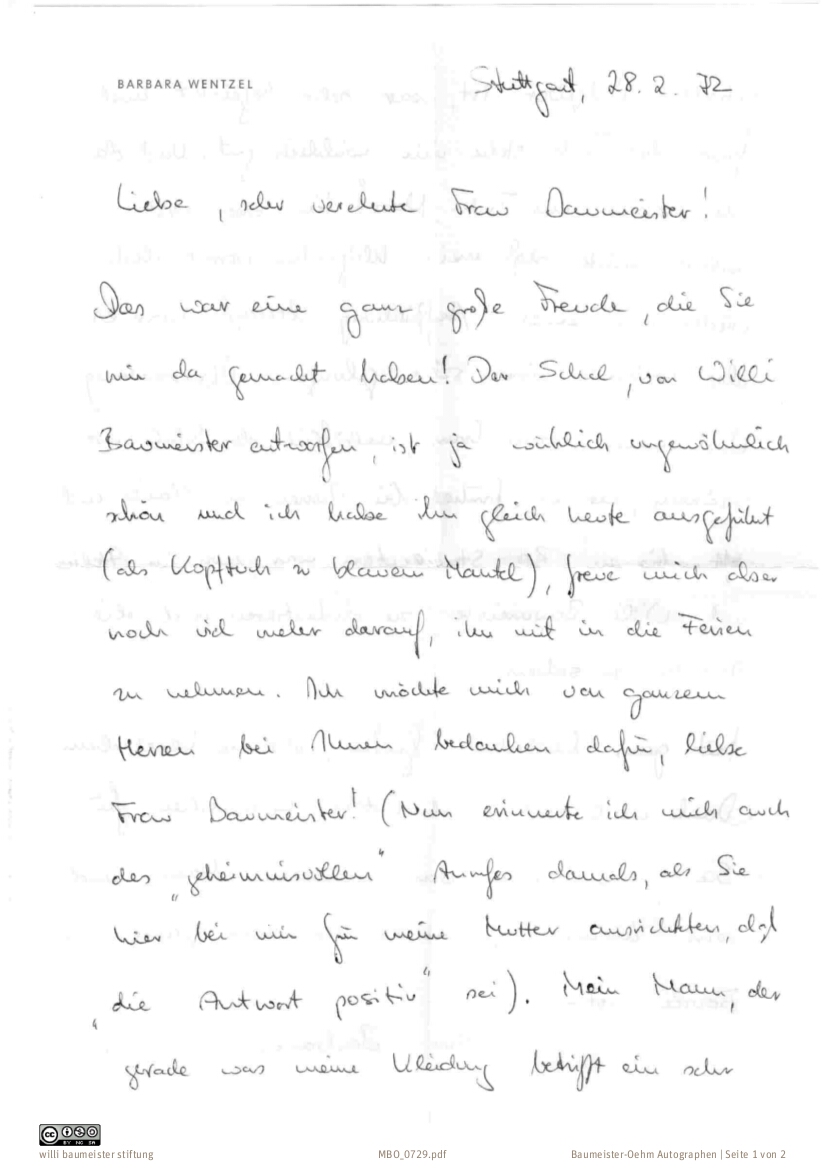 BARBARA WENTZEL
Stuttgart, 28. 2. 72
Liebe, sehr verehrte Frau Baumeister!
Das war eine ganz große Freude, die Sie
mir da gemacht haben! Der Schal, von Willi
Baumeister entworfen, ist ja wirklich ungewöhnlich
schön und ich habe ihn gleich heute ausgeführt
(als Kopftuch zu blauem Mantel), freue mich aber
noch viel mehr darauf, ihn mit in die Ferien
zu nehmen. Ich möchte mich von ganzem
Herzen bei Ihnen bedanken dafür, liebe
Frau Baumeister! (Nun erinnerte ich mich auch
des „geheimnisvollen“ Anrufes damals, als Sie
hier bei mir für meine Mutter ausrichteten, daß
„die Antwort positiv“ sei). Mein Mann, der
gerade was meine Kleidung betrifft ein sehr
CC BY NC SA
willi baumeister stiftung MBO_0729.pdf Baumeister-Oehm Autographen | Seite 1 von 2